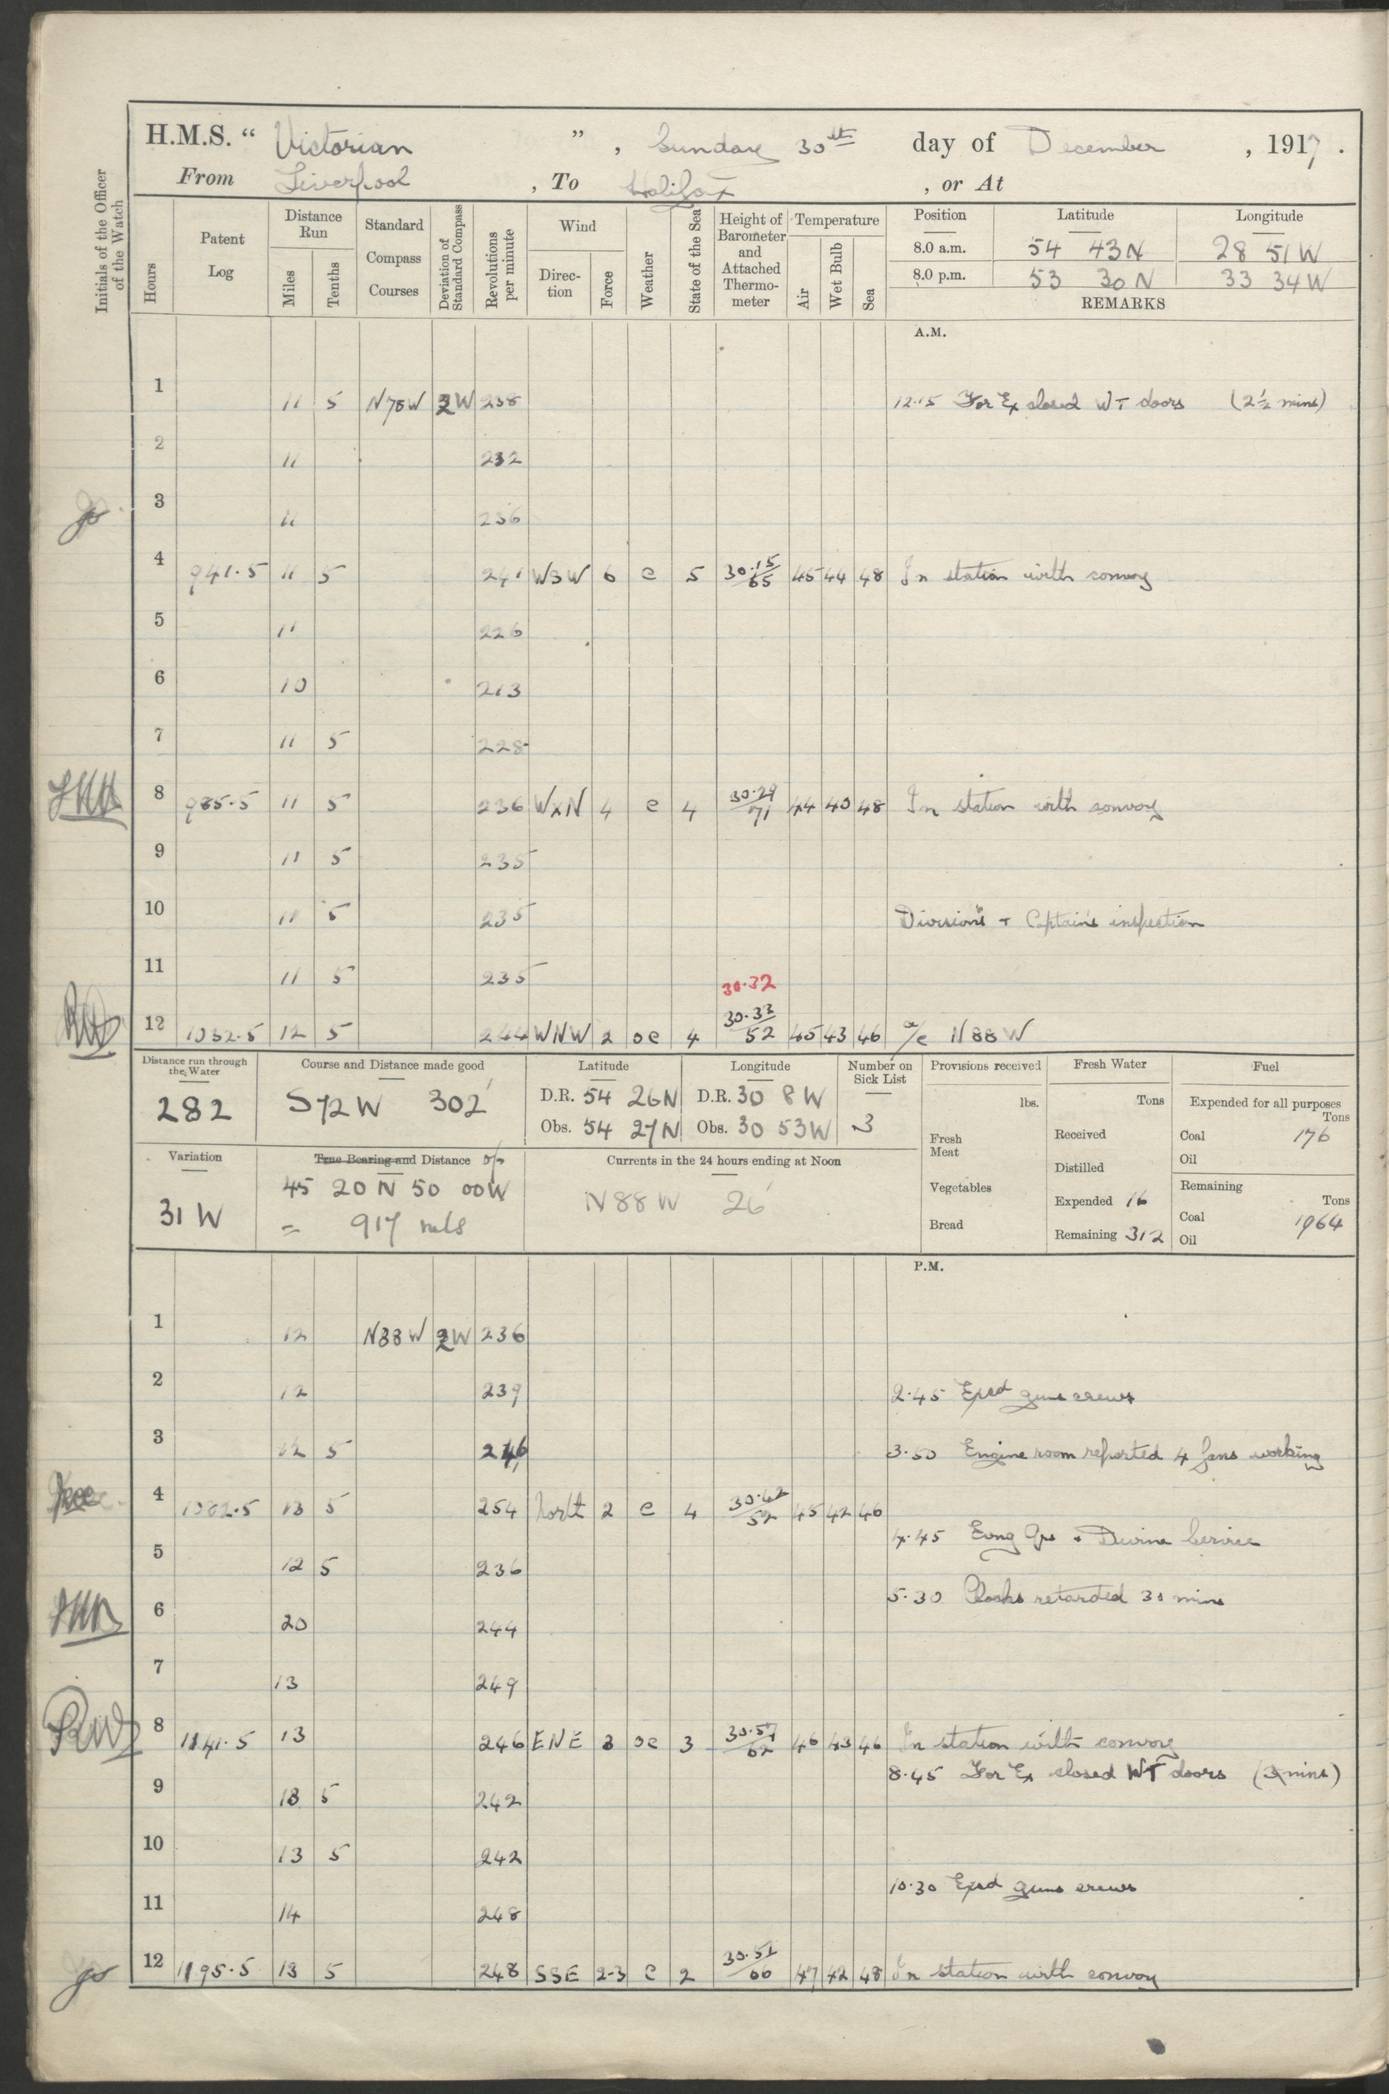 H.M.S. " Victorian ", Sunday 30th day of December, 1917.
From Liverpool, To Halifax, or At
Initials of the Officer of the Watch
Hours
Patent Log
Distance Run
Miles
Tenths
Standard Compass Courses
Deviation of Standard Compass
Revolutions per minute
Wind
Direction
Force
Weather
State of the Sea
Height of Barometer and Attached Thermometer
Temperature
Air
Wet Bulb
Sea
Position Latitude Longitude
8.0 a.m. 54 43 N 28 51 W
8.0 p.m. 53 30 N 33 34 W
REMARKS
A.M.
1 11 5 N78W 2W 238 12.15 For Ex closed WT doors (2½ mins)
2 11 232
3 11 236
4 941.5 11 5 241 WSW 6 c 5 30.15/65 45 44 48 In station with convoy
5 11 226
6 10 213
7 11 5 228
8 985.5 11 5 236 WxN 4 c 4 30.29/71 44 40 48 In station with convoy
9 11 5 235
10 11 5 235 Divisions + Captains inspection
11 11 5 235
30.32
12 1032.5 12 5 244 WNW 2 oc 4 30.33/52 45 43 46 a/c N88W
Distance run through the Water
282
Course and Distance made good
S72W 302'
Latitude
D.R. 54 26N
Obs. 54 27N
Longitude
D.R. 30 8W
Obs. 30 53W
Number on Sick List
3
Provisions received
lbs.
Fresh Meat
Vegetables
Bread
Fresh Water
Tons
Received
Distilled
Expended 16
Remaining 312
Fuel
Expended for all purposes
Tons
Coal 176
Oil
Remaining
Tons
Coal 1964
Oil
Variation
31 W
True Bearing and Distance of
45 20 N 50 00W
= 917 mls
Currents in the 24 hours ending at Noon
N88W 26'
P.M.
1 12 N88W 2W 236
2 12 239 2.45 Exsd guns crews
3 12 5 246 3.50 Engine room reported 4 fans working
4 1082.5 13 5 254 North 2 c 4 30.42/52 45 42 46
4.45 Evng Qrs + Divine Service
5 12 5 236
5.30 Clocks retarded 30 mins
6 20 244
7 13 249
8 1141.5 13 246 ENE 3 oc 3 30.57/62 46 43 46 In station with convoy
8.45 For Ex closed WT doors (3 mins)
9 13 5 242
10 13 5 242
10.30 Exsd guns crews
11 14 248
12 1195.5 13 5 248 SSE 2-3 c 2 30.51/66 47 42 48 In station with convoy